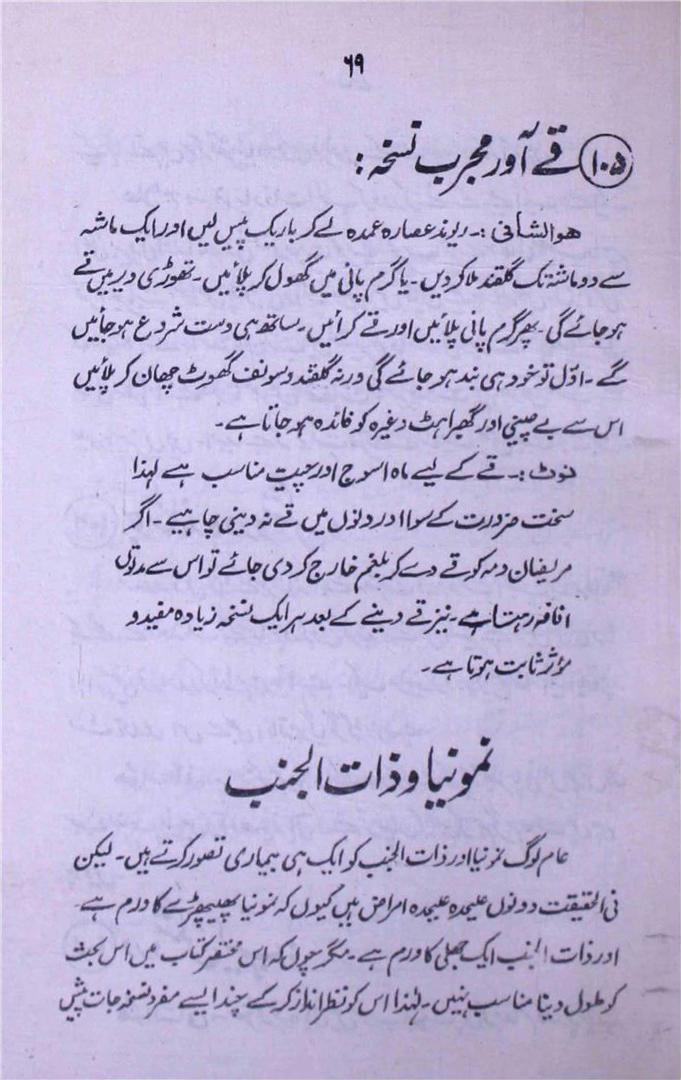 ۶۹
۱۰۵ قے آور مجرب نسخہ :
ھوالشافی :۔ ریوند عصارہ عمدہ لے کر باریک پیس لیں اور ایک ماشہ
سے دو ماشہ تک گلقند ملا کر دیں۔ یا گرم پانی میں گھول کر پلائیں۔ تھوڑی دیر میں قے
ہو جائے گی۔ پھر گرم پانی پلائیں اور قے کرائیں۔ ساتھ ہی دست شروع ہو جائیں
گے۔ اوّل تو خود ہی بند ہو جائے گی ورنہ گلقند و سونف گھوٹ چھان کر پلائیں
اس سے بے چینی اور گھبراہٹ وغیرہ کو فائدہ ہو جاتا ہے۔
نوٹ :۔ قے کے لیے ماہ اسوج اور چیت مناسب ہے لہٰذا
سخت ضرورت کے سوا اور دنوں میں قے نہ دینی چاہیے۔ اگر
مریضان دمہ کو قے دے کر بلغم خارج کر دی جائے تو اس سے مدتوں
افاقہ رہتا ہے۔ نیز قے دینے کے بعد ہر ایک نسخہ زیادہ مفید و
مؤثر ثابت ہوتا ہے۔
نمونیا و ذات الجنب
عام لوگ نمونیا اور ذات الجنب کو ایک ہی بیماری تصور کرتے ہیں۔ لیکن
فی الحقیقت دونوں علیحدہ علیحدہ امراض ہیں کیوں کہ نمونیا پھیپھڑے کا ورم ہے۔
اور ذات الجنب ایک جھلی کا ورم ہے۔ مگر چوں کہ اس مختصر کتاب میں اس بحث
کو طول دینا مناسب نہیں۔ لہٰذا اس کو نظر انداز کر کے چند ایسے مفرد نسخہ جات پیش